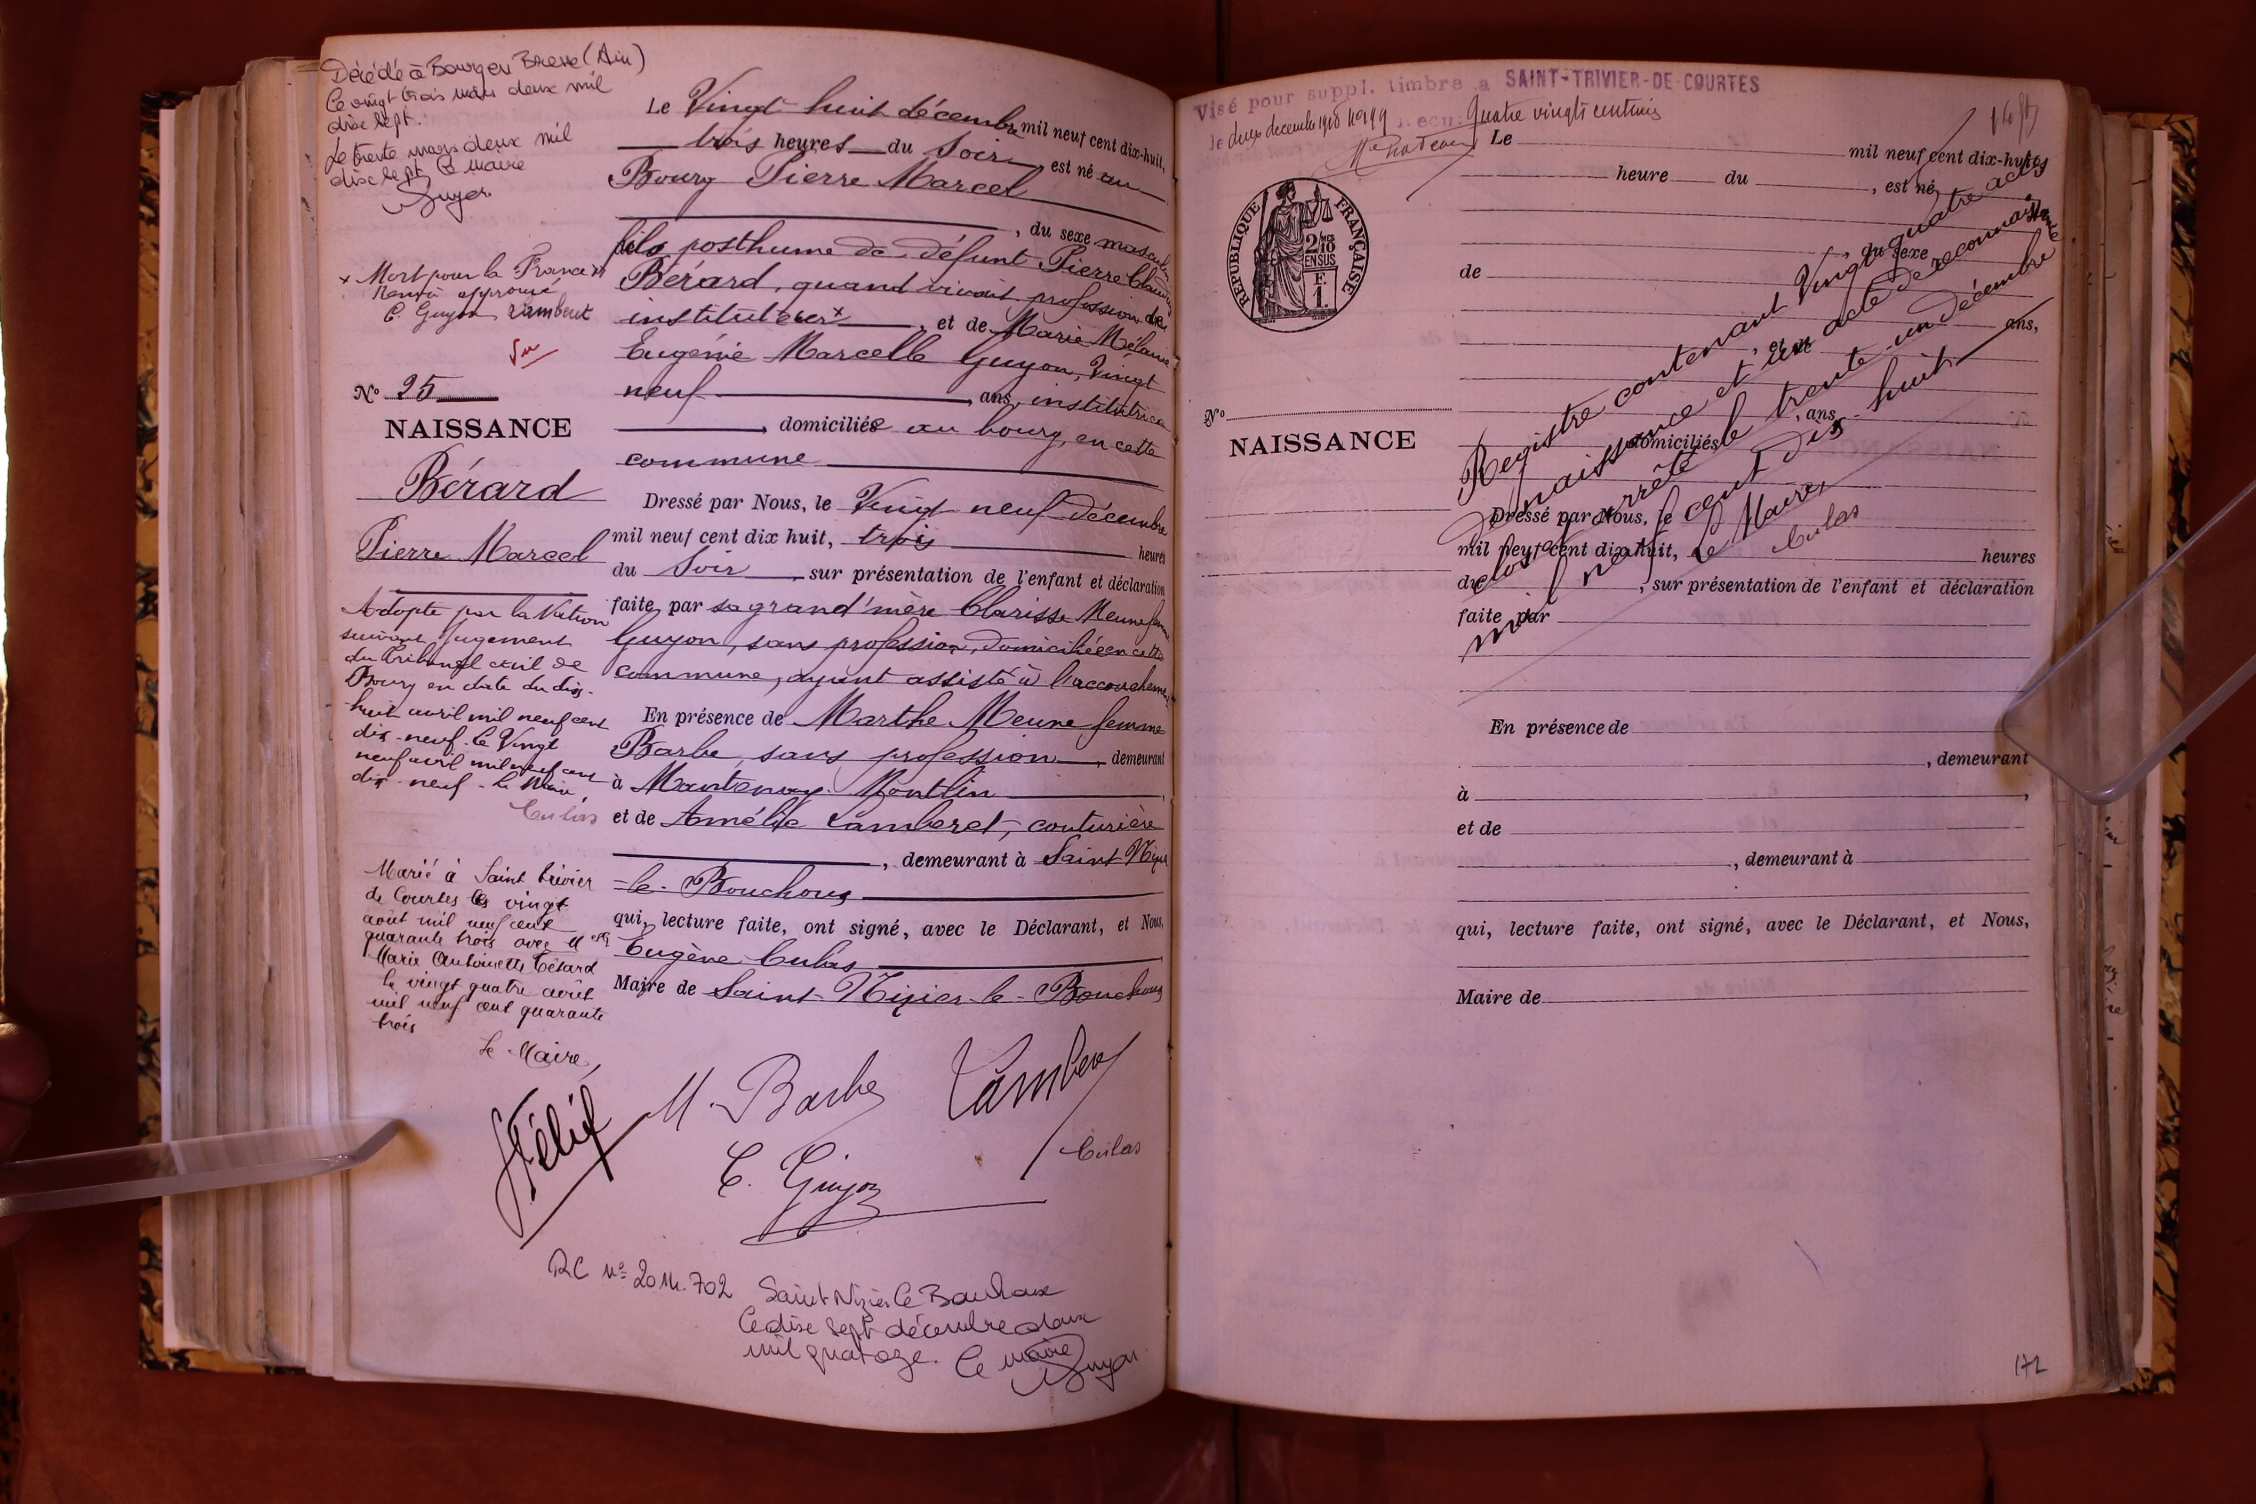 Décédé à Bourg en Bresse (Ain)
le vingt trois mars deux mil
dix sept.
Le trente mars deux mil
dix sept, le maire
× Mort pour la France
Renvoi approuvé
C. Guyon Lambert
Vu
N° 25
NAISSANCE
Bérard
Pierre Marcel
Adopté par la Nation
suivant jugement
du Tribunal civil de
Bourg en date du dix-
huit avril mil neuf cent
dix-neuf. Le Vingt
neuf avril mil neuf cent
dix-neuf - Le Maire,
Culas
Marié à Saint Trivier
de Courtes le vingt
août mil neuf cent
quarante trois avec Mlle
Marie Antoinette Tétard
le vingt quatre août
mil neuf cent quarante
trois
Le Maire,
Le Vingt huit décembre mil neuf cent dix-huit,
trois heures du Soir, est né au
Bourg Pierre Marcel
, du sexe masculin
fils posthume de défunt Pierre Claudius
Bérard, quand vivait profession de
instituteur × et de Marie Mélanie
Eugénie Marcelle Guyon, Vingt
neuf ans, institutrice
, domiciliée au bourg, en cette
commune
Dressé par Nous, le Vingt neuf Décembre
mil neuf cent dix huit, trois heures
du Soir, sur présentation de l'enfant et déclaration
faite par sa grand'mère Clarisse Meune femme
Guyon, sans profession, domiciliée en cette
commune, ayant assisté à l'accouchement
En présence de Marthe Meune femme
Barbe, sans profession, demeurant
à Mantenay-Montlin,
et de Amélie Lamberet, couturière
, demeurant à Saint Nizier
-le-Bouchoux
qui, lecture faite, ont signé, avec le Déclarant, et Nous,
Eugène Culas
Maire de Saint-Nizier-le-Bouchoux
M. Barbe
Lamberet
C. Guyon
Culas
RC n° 2014.702 Saint Nizier le Bouchoux
le dix sept décembre deux
mil quatorze. Le maire
Visé pour suppl. timbre à SAINT-TRIVIER-DE-COURTES
le deux décembre 1918 N° 199 Reçu: Quatre vingts centimes
RÉPUBLIQUE FRANÇAISE
2/10 EN SUS
F.
1.
N°
NAISSANCE
Le mil neuf cent dix-huit,
heure du , est né
, du sexe
de
ans,
, et de
, ans
domiciliés
Dressé par Nous, le
mil neuf cent dix huit, heures
du , sur présentation de l'enfant et déclaration
faite par
En présence de
, demeurant
à ,
et de
, demeurant à
qui, lecture faite, ont signé, avec le Déclarant, et Nous,
Maire de
Registre contenant Vingt quatre actes
de naissance et un acte de reconnaissance
clos et arrêté le trente-un décembre
mil neuf cent dix-huit
Le Maire,
Culas
172